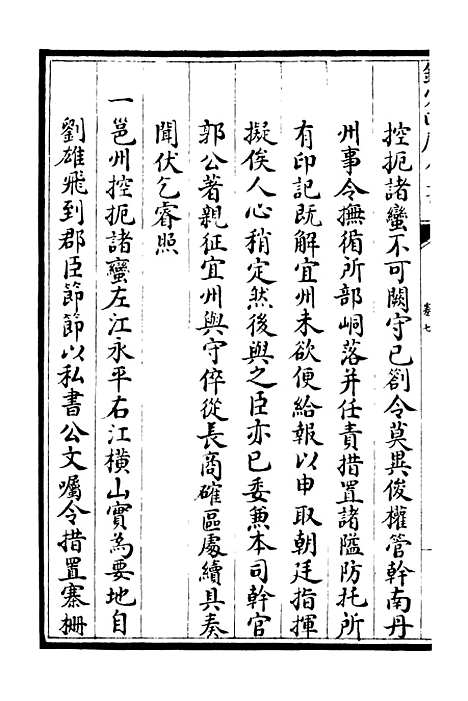 控扼諸蠻不可闕守已劄令莫異俊權管幹南丹
州事令撫循所部峒落并任責措置諸隘防托所
有印記既解宜州未欲便給報以申取朝廷指揮
擬俟人心稍定然後與之臣亦已委兼本司幹官
郭公著親征宜州與守倅從長商確區處續具奏
聞伏乞睿照
一邕州控扼諸蠻左江永平右江橫山實為要地自
劉雄飛到郡臣節節以私書公文囑令措置寨柵
卷七